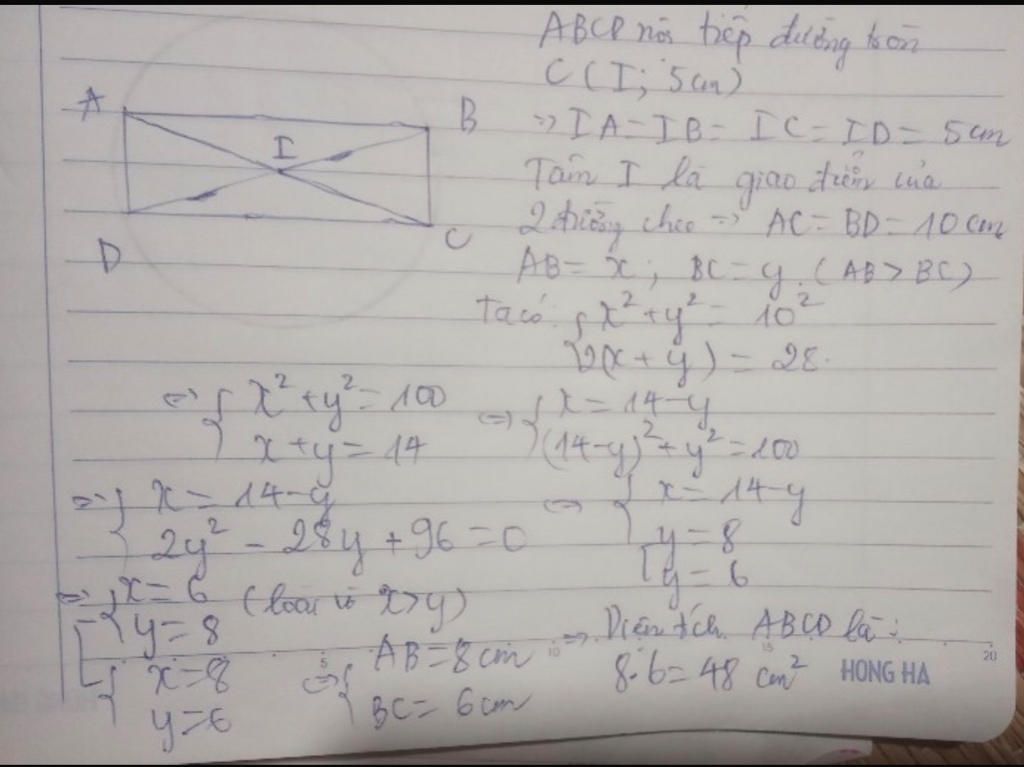 ABCD nội tiếp đường tròn
C (I; 5cm)
=> IA = IB = IC = ID = 5cm
Tâm I là giao điểm của
2 đường chéo => AC = BD = 10 cm
AB = x; BC = y. (AB > BC)
Ta có: { x² + y² = 10²
2(x + y) = 28.
A
B
I
D
C
<=> { x² + y² = 100
x + y = 14
<=> { x = 14 - y
(14 - y)² + y² = 100
<=> { x = 14 - y
2y² - 28y + 96 = 0
<=> { x = 14 - y
[ y = 8
y = 6
<=> [ { x = 6 (loại vì x > y)
y = 8
{ x = 8
y = 6
<=> { AB = 8 cm
BC = 6 cm
=> Diện tích ABCD là:
8.6 = 48 cm²
5 10 15 20
HONG HA